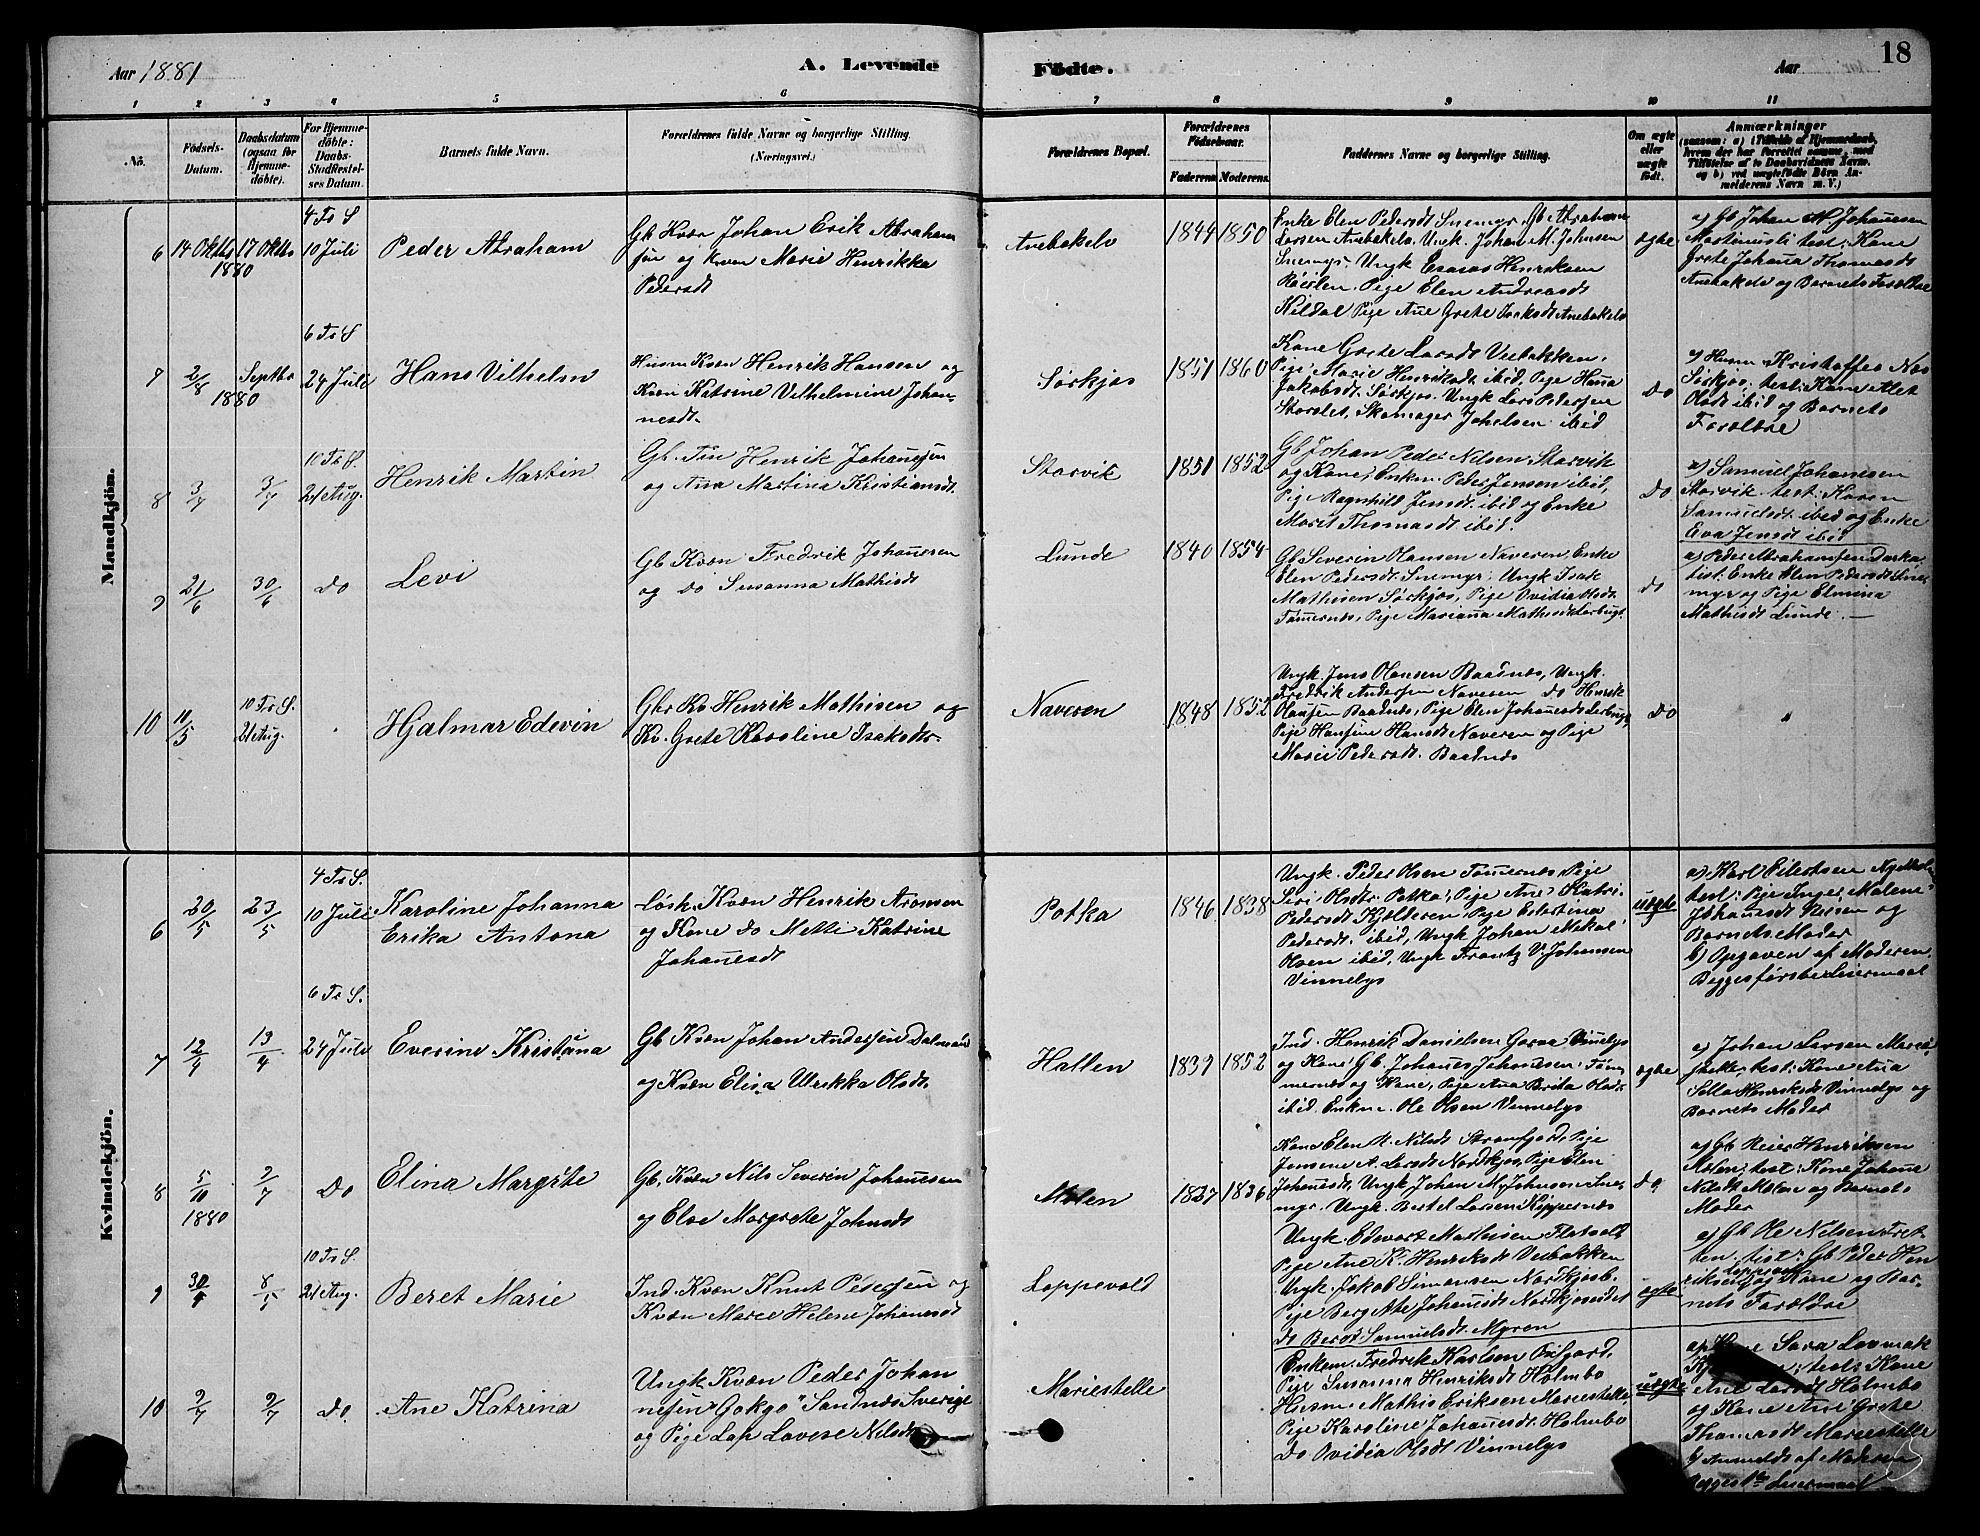 Aar 1881
A. Levende
Fødte.
Aar
18
1 2 3 4 5 6 7 8 9 10 11
No.
Fødsels-Datum.
Daabsdatum (ogsaa for Hjemme-døbte).
For Hjemme-døbte: Daabs-Stadfæstel-ses Datum.
Barnets fulde Navn.
Forældrenes fulde Navne og borgerlige Stilling. (Næringsvei.)
Forældrenes Bopæl.
Forældrenes Fødselsaar.
Faderens Moderens
Faddernes Navne og borgerlige Stilling.
Om ægte eller uægte født.
Anmærkninger
(saasom: a) (Tilfælde af Hjemmedaab,
hvem der har forrettet samme, med
Tilføielse af to Daabsvidners Navne.
og b) ved uægtefødte Børn An-
melderens Navn m. V.)
Mandkjön.
6
14 Oktbr 1880
17 Oktbr 1880
4 Tr S
10 Juli
Peder Abraham
Gb Kvæn Johan Erik Abraham
sen og Kvæn Marie Henrikka
Pedersdt
Anebakelv
1844 1850
Enke Elen Pedersdt Snemyr, Gb Abraham
Larsen Anebakelv, Ungk. Johan M. Johnsen
Snemyr, Ungk Esaias Henriksen
Pige Elen Andreasdt
Kildal Pige Ane Grete Isaksdt Anebakelv
ægte
a) Gb Johan M Johannesen
test: Kone
Grete Johanna Thomasdt
Anebakelv og Barnets Forældre
7
2/8 1880
Septbr
6 Tr S
24 Juli
Hans Vilhelm
Husm Kvæn Henrik Hansen og
Kvæn Katrine Vilhelmine Johan-
nesdt.
Sørkjos
1851 1860
Kone Grete Larsdt Veebakken,
Pige Marie Henriksdt ibid, Pige Hana
Jakobsdt Sørkjos, Ungk Lars Pedersen
Storslet, Skomager Johelsen ibid
Do
a) Husm Kristoffer
Sørkjos, test: Kone Alet
Olsdt ibid og Barnets
Forældre
8
3/7
3/7
10 Tr S.
21 Aug.
Henrik Martin
Gb. Fin Henrik Johannesen
og Ana Martina Kristiansdt.
Storvik
1851 1852
Gb Johan Peder Nilsen Storvik
og Kone, Enkem. Peder Jensen ibid,
Pige Ragnhild Jensdt ibid og Enke
Maret Thomasdt ibid.
Do
a) Samuel Johannesen
Storvik test: Karen
Samuelsdt ibid og Enke
Eva Jensdt ibid
9
21/6
30/6
Do
Levi
Gb Kvæn Fredrik Johannesen
og do Susanna Mathisdt
Lunde
1840 1854
Gb Severin Hansen Naveren, Enke
Elen Pedersdt Snemyr, Ungk Isak
Mathisen Sørkjos, Pige Ovidia Olsdt
Tømmernes, Pige Mariana Mathisdt
do
a) Peder Abrahamsen
test: Enke Elen Pedersdt Sne-
myr og Pige Elmina
Mathisdt Lunde.
10
11/5
10 Tr S.
21 Aug.
Hjalmar Edevin
Gbr Kv Henrik Mathisen og
Kv. Grete Karoline Isaksdt.
Naveren
1848 1852
Ungk Jens Hansen Baadnes, Ungk.
Fredrik Andersen Naveren do Henrik
Hansen Baadnes, Pige Elen Johannesdt
Pige Hansine Hansdt Naveren og Pige
Marie Pedersdt. Baadnes
Do
"
Kvindekjön.
6
20/5
23/5
4 Tr S.
10 Juli
Karoline Johanna
Erika Antona
Løsk. Kvæn Henrik Aronsen
og Kone do Mette Katrine
Johannesdt
Potka
1846 1838
Ungk. Peder Olsen Tømmernes Pige
Siri Olsdtr. Potka, Pige Ane Katri.
Pedersdt Kjelderen, Pige Celestina
Pedersdt. ibid, Ungk Johan Mikal
Olsen ibid, Ungk Frantz V. Johansen
Vinnelys
uægte
a) Karl Eilertsen
test: Pige Inger Malene
Johannesdt Reisen og
Barnets Moder
b) Opgaven af Moderen
Begges første Leiermaal
7
12/4
13/4
6 Tr S.
24 Juli
Everine Kristiana
Gb Kvæn Johan Andersen Dalmand
og Kvæn Elisa Ulrikka Olsdt.
Hatten
1837 1852
Ind. Henrik Danielsen Vinnelys
og Kone, Gb. Johannes Johannesen Tøm-
mernes og Kone, Pige Ana Berita Olsdt
ibid. Enkm. Ole Olsen Vinnelys
ægte
a) Johan Larsen
test: Kone Ana
Henriksdt Vinnelys og
Barnets Moder
8
5/10 1880
2/7
Do
Elina Margrete
Gb, Kvæn Nils Severin Johannesen
og Else Margrete Johnsdt
Molen
1837 1836
Kone Elen M. Nilsdt Straumfjord, Pige
Jensine A. Larsdt Nordkjos, Pige Elen
Johannesdt, Ungk Johan M. Johnsen Sne-
myr, Ungk. Bertel Larsen Kippernes
do
a) Gb Reier Henriksen
Molen, test: Kone Johanne
Nilsdt Molen og Barnets
Moder
9
30/4
8/5
10 Tr S.
21 Aug.
Beret Marie
Ind. Kvæn Knut Pedersen og
Kvæn Maree Helene Johannesdt
Loppevold
Ungk. Edevart Mathisen Flatvold
Pige Ane K. Henriksdt Veebakken
Ungk. Jakob Simonsen Nordkjosb.
Pige Bergitte Johannesdt Nordkjoseidet
do Beret Samuelsdt. Myren
ægte
a) Gb Ole Nilsen
test: Gb Peder Hen
riksen Loppevold og Kone og Bar-
nets Forældre
10
2/7
2/7
Do
Ane Katrina
Ungk Kvæn Peder Johan
nesen "Gokgo" Sandnes Sverige
og Pige Lap Lovise Nilsdt
Mariestelle
Enkem. Fredrik Karlsen
Pige Susanna Henriksdt Holmbo
Husm Mathis Eriksen Mariestelle,
Pige Karoline Johannesdt. Holmbo
Do Ovidia Olsdt Vinnelys
uægte
a) Kone Sara
test: Kone
Ane Larsdt Holmbo
og Kone Ane Grete
Thomasdt Mariestelle
b) Anmeldt af Moderen
Begges 1ste Leiermaal